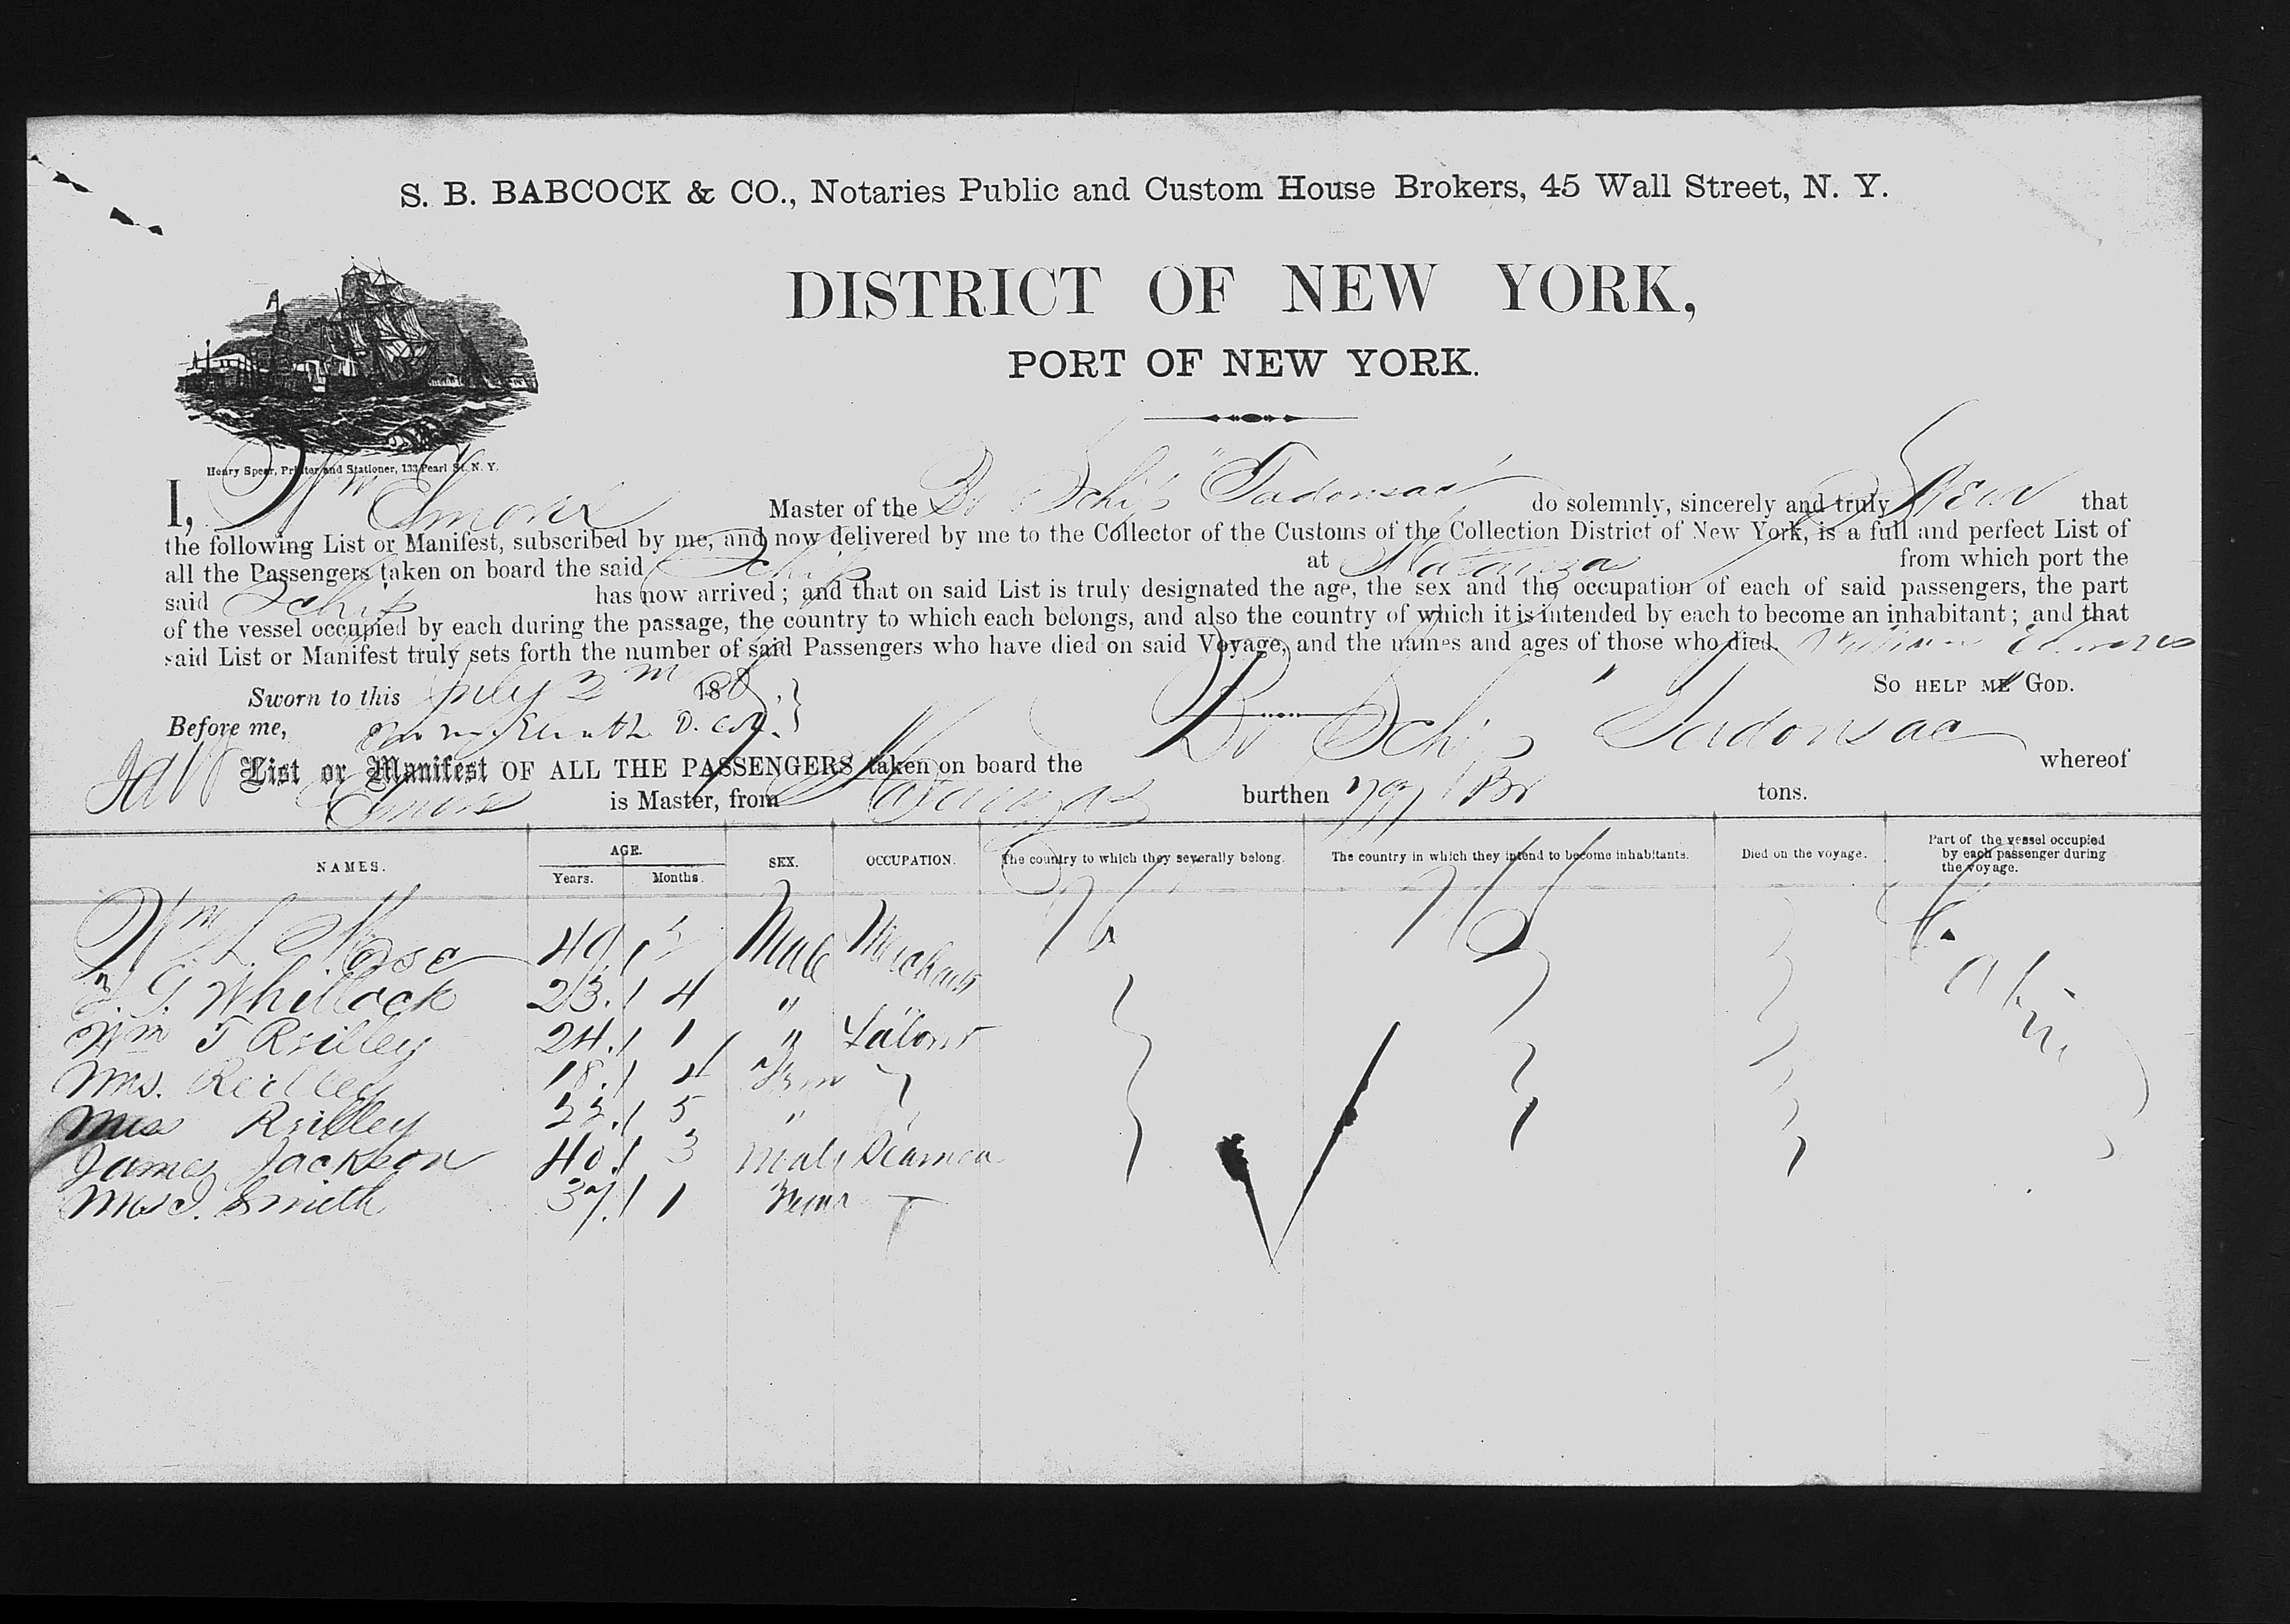 S. B. BABCOCK & CO., Notaries Public and Custom House Brokers, 45 Wall Street, N. Y.
DISTRICT OF NEW YORK,
PORT OF NEW YORK.
Henry Spear, Printer and Stationer, 133 Pearl St. N. Y.
I, Wm Master of the Br Schip "Tadousac" do solemnly, sincerely and truly that
the following List or Manifest, subscribed by me, and now delivered by me to the Collector of the Customs of the Collection District of New York, is a full and perfect List of
all the Passengers taken on board the said Schip at Matanza from which port the
said Schip has now arrived; and that on said List is truly designated the age, the sex and the occupation of each of said passengers, the part
of the vessel occupied by each during the passage, the country to which each belongs, and also the country of which it is intended by each to become an inhabitant; and that
said List or Manifest truly sets forth the number of said Passengers who have died on said Voyage, and the names and ages of those who died. William
Sworn to this July 186 SO HELP ME GOD.
Before me, D. Col.
List or Manifest OF ALL THE PASSENGERS taken on board the Br Schip Tadousac whereof
is Master, from Matanzas burthen tons.
NAMES. AGE. Years. Months. SEX. OCCUPATION. The country to which they severally belong. The country in which they intend to become inhabitants. Died on the voyage. Part of the vessel occupied by each passenger during the voyage.
Wm L. 49 Male Merchant
Whitlock 23. 4 "
Wm T Reilley 24. 1 " Labour
Mrs. Reilley 18. 4 Fem
Miss Reilley 22. 5 "
James Jackson 40. 3 Male Seamen
Mrs J. Smith 37. 1 Fema